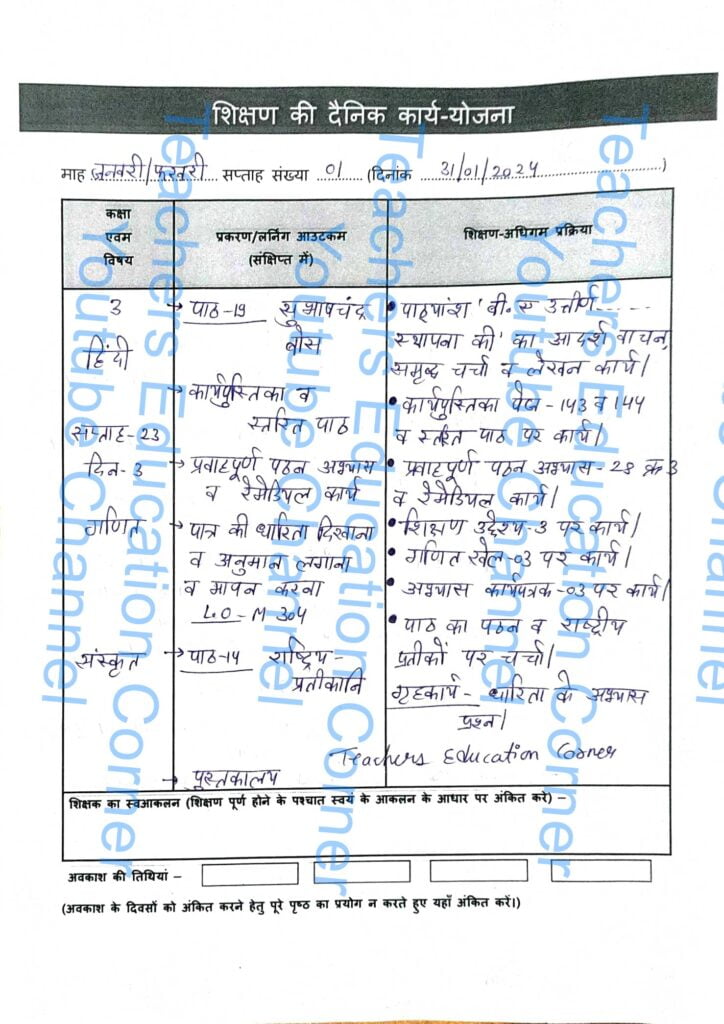 शिक्षण की दैनिक कार्य-योजना
माह जनवरी/फरवरी सप्ताह संख्या 01 (दिनांक 31/01/2024)
कक्षा एवम विषय
प्रकरण/लर्निग आउटकम (संक्षिप्त में)
शिक्षण-अधिगम प्रक्रिया
3
हिंदी
सप्ताह-23
दिन-3
गणित
संस्कृत
→ पाठ-19 सुभाषचंद्र
बोस
→ कार्यपुस्तिका व
स्तरित पाठ
→ प्रवाहपूर्ण पठन अभ्यास
व रेमेडियल कार्य
→ पात्र की धारिता दिखाना
व अनुमान लगाना
व मापन करना
LO-M 304
→ पाठ-14 राष्ट्रिय-
प्रतीकानि
→ पुस्तकालय
• पाठ्यांश 'बी.ए उत्तीर्ण.....
स्थापना की' का आदर्श वाचन,
समृद्ध चर्चा व लेखन कार्य।
• कार्यपुस्तिका पेज-143 व 144
व स्तरित पाठ पर कार्य।
• प्रवाहपूर्ण पठन अभ्यास-28 क्र 3
व रेमेडियल कार्य।
• शिक्षण उद्देश्य-3 पर कार्य।
• गणित खेल-03 पर कार्य।
• अभ्यास कार्यपत्रक-03 पर कार्य।
• पाठ का पठन व राष्ट्रीय
प्रतीकों पर चर्चा।
गृहकार्य- धारिता के अभ्यास
प्रश्न।
Teachers Education Corner
शिक्षक का स्वआकलन (शिक्षण पूर्ण होने के पश्चात स्वयं के आकलन के आधार पर अंकित करे) –
अवकाश की तिथियां –
(अवकाश के दिवसों को अंकित करने हेतु पूरे पृष्ठ का प्रयोग न करते हुए यहाँ अंकित करें।)
Teachers Education Corner
Youtube Channel
Teachers Education Corner
Youtube Channel
Teachers Education Corner
Youtube Channel